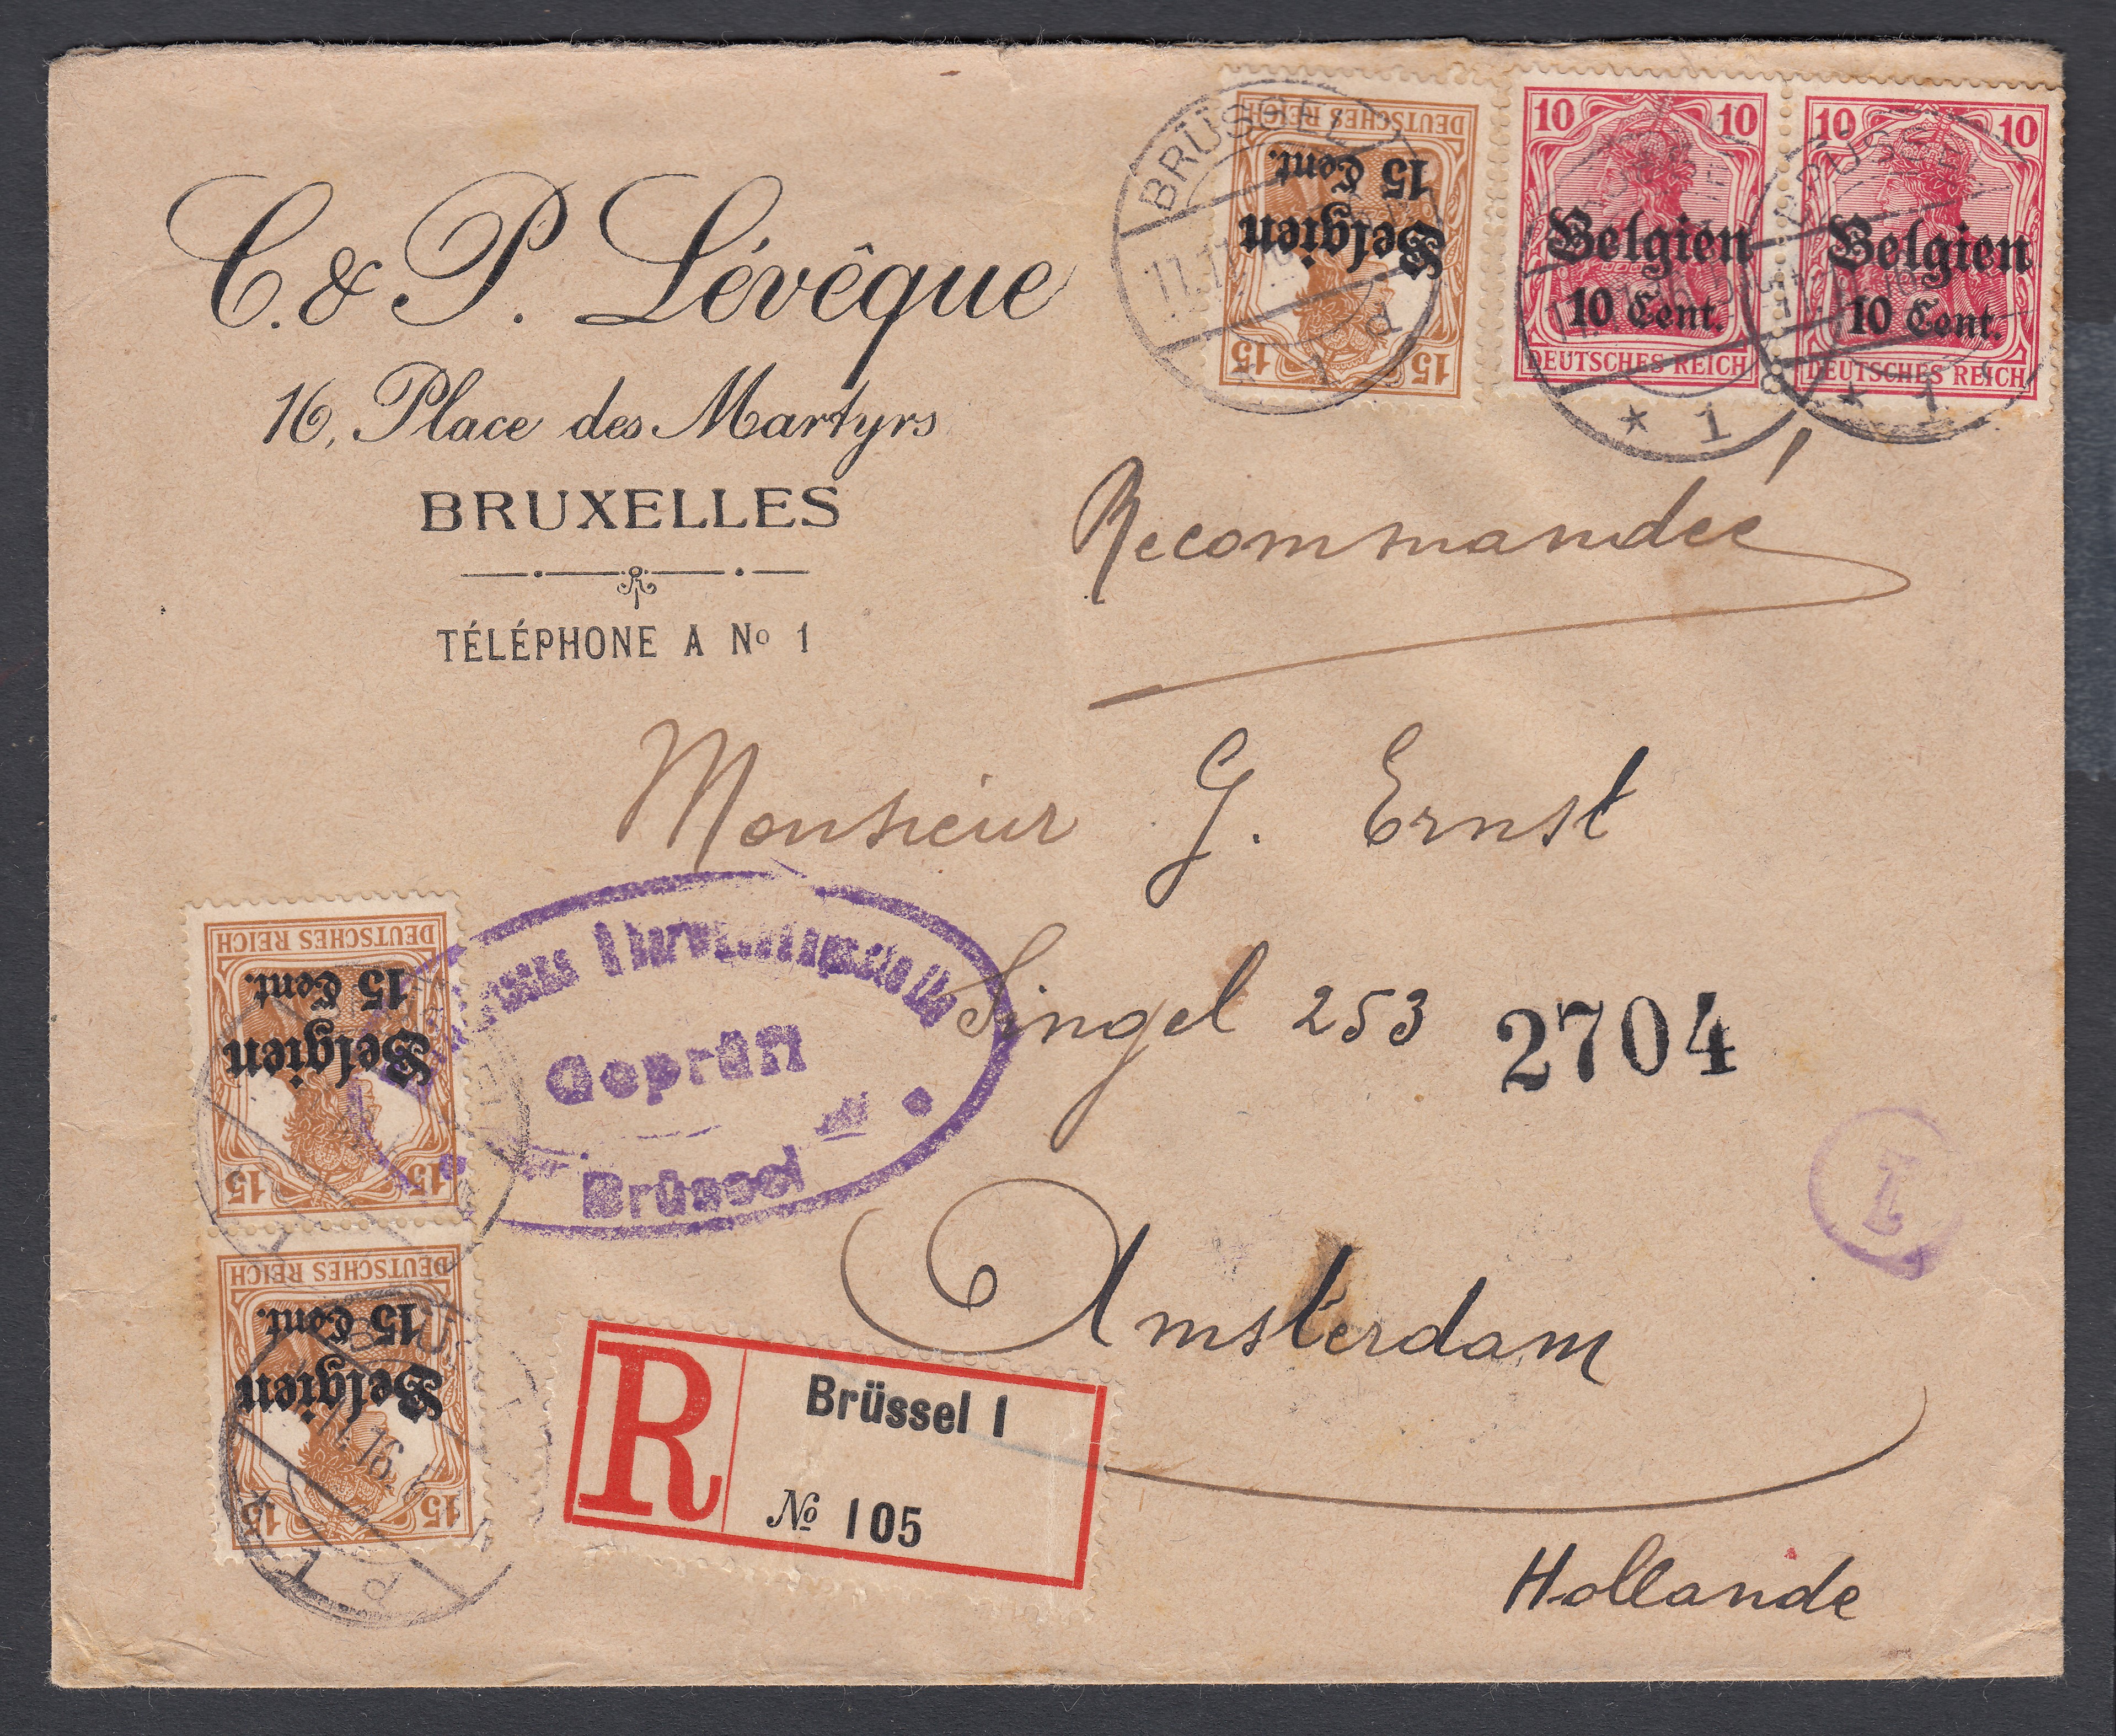 C. & P. Lévêque
16, Place des Martyrs
BRUXELLES
TÉLÉPHONE A No 1
BRÜSSEL
DEUTSCHES REICH
15 Cent.
Belgien
15 15
10 10
Belgien
10 Cent.
DEUTSCHES REICH
* 1
10 10
BRÜSSEL
Belgien
10 Cent.
DEUTSCHES REICH
* 1
Recommandée
Monsieur G. Ernst
Singel 253
2704
Amsterdam
Hollande
DEUTSCHES REICH
15 Cent.
Belgien
15 15
DEUTSCHES REICH
15 Cent.
Belgien
15 15
Geprüft
Brüssel
R
Brüssel 1
No 105